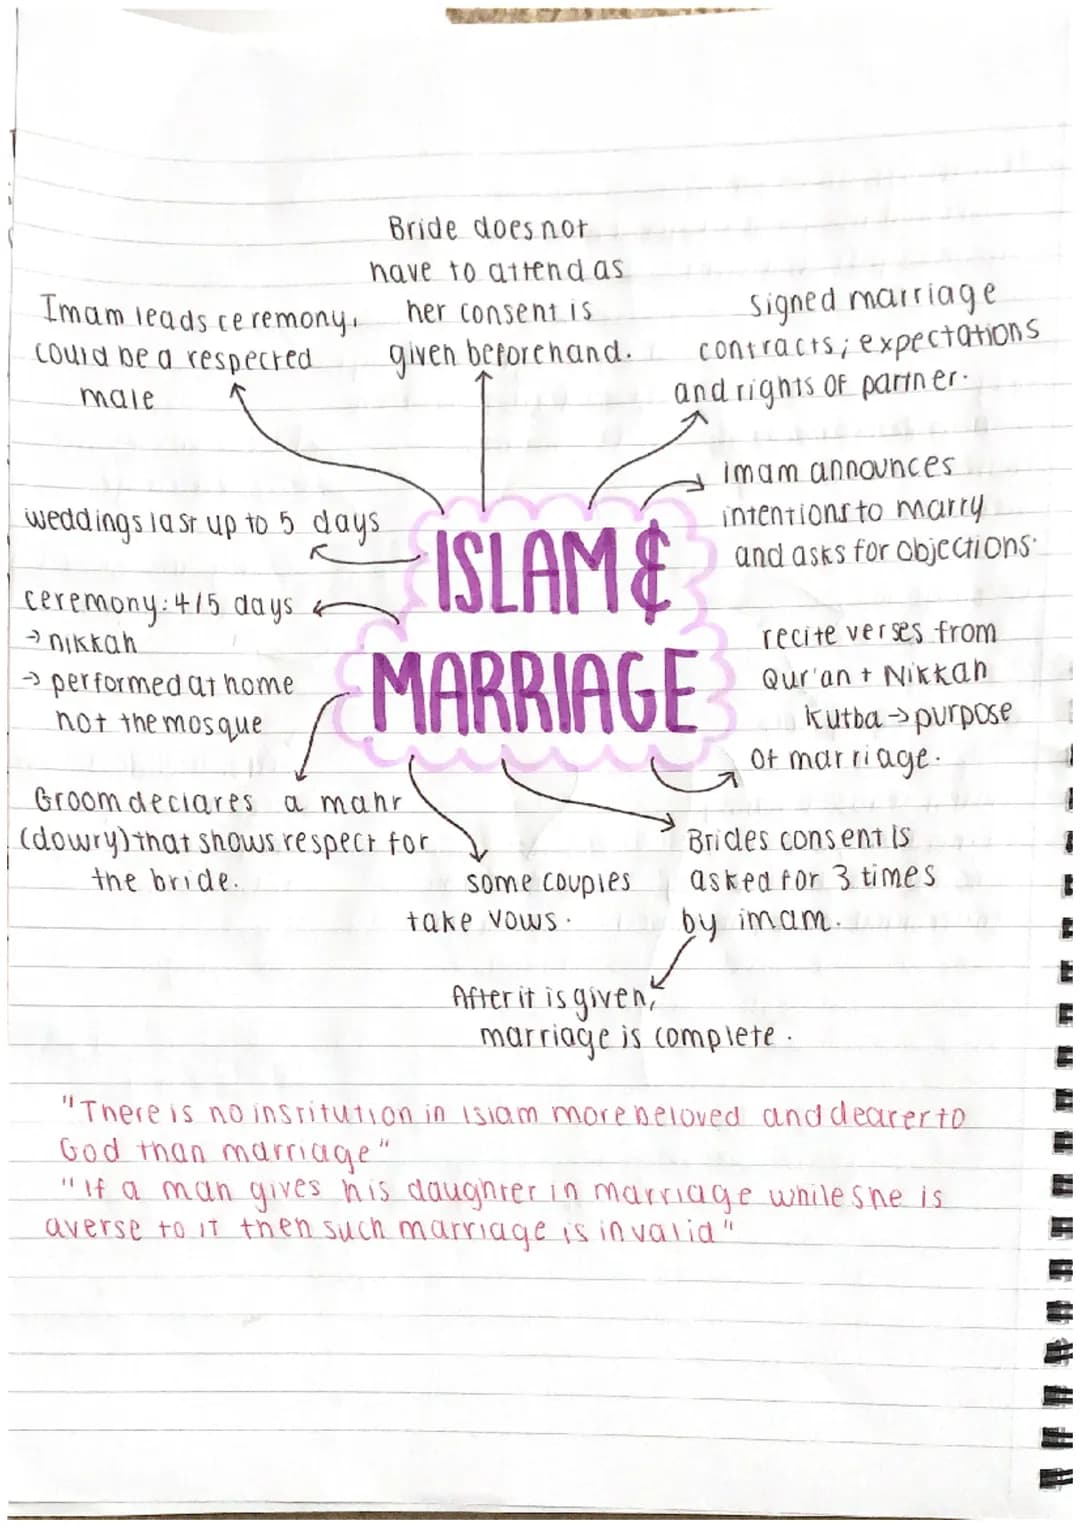 Bride does not
have to attend as
her consent is
given beforehand.
Imam leads ceremony,
could be a respected
male
signed marriage
contracts; expectations
and rights of partner.
imam announces
intentions to marry
and asks for objections.
weddings last up to 5 days
ISLAM &
MARRIAGE
ceremony: 4/5 days
→ nikkah
→ performed at home
not the mosque
recite verses from
Qur'an + Nikkah
Kutba → purpose
of marriage.
Groom declares a mahr
(dowry) that shows respect for
the bride.
some couples
take vows.
Brides consent is
asked for 3 times
by imam.
After it is given,
marriage is complete.
"There is no institution in islam more beloved and dearer to
God than marriage"
"If a man gives his daughter in marriage while she is
averse to it then such marriage is invalid"